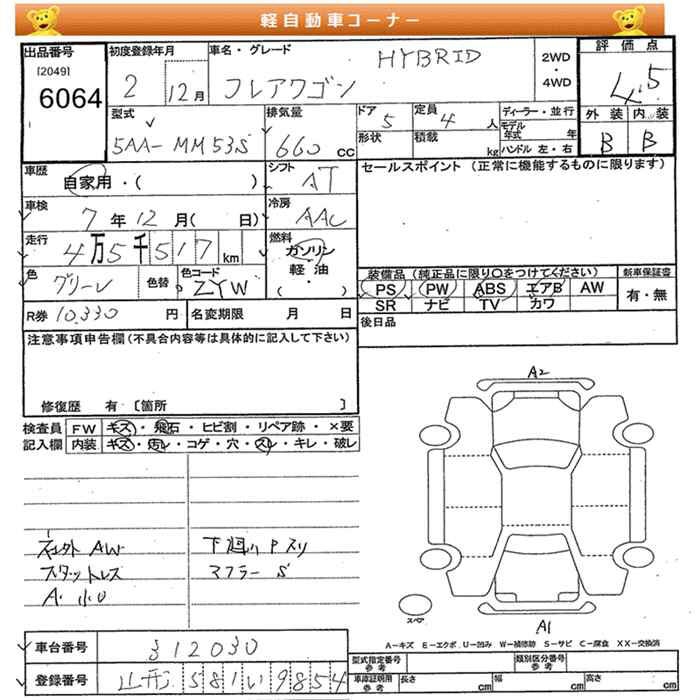 軽自動車コーナー
出品番号
[2049]
6064
初度登録年月
2 12月
車名・グレード
HYBRID
フレアワゴン
2WD
・
4WD
評価点
4.5
外装 内装
B B
型式
5AA-MM53S
排気量
660 cc
ドア
5
定員
4 人
形状
積載
kg
ディーラー・並行
モデル年式 年
ハンドル 左・右
車歴
自家用・( )
シフト
AT
セールスポイント (正常に機能するものに限ります)
車検
7年12月( 日)
冷房
AAC
走行
4万5千517km
燃料
ガソリン
・
軽油
・
( )
色
グリーン
色替
色コード
ZYW
装備品 (純正品に限り〇をつけてください)
PS PW ABS エアB AW
SR ナビ TV カワ
新車保証書
有・無
R券 10,330 円
名変期限 月 日
後日品
注意事項申告欄 (不具合内容等は具体的に記入して下さい)
修復歴 有 〔箇所 〕
検査員
記入欄
FW キズ・飛石・ヒビ割・リペア跡・×要
内装 キズ・汚レ・コゲ・穴・スレ・キレ・破レ
社外AW
スタットレス
A・小U
下廻りPスリ
マフラーS
A2
スペア
A1
A-キズ E-エクボ U-凹み W-補修跡 S-サビ C-腐食 XX-交換済
車台番号 312030
登録番号 山形581い9854
型式指定番号
参考
類別区分番号
参考
車庫証明用
参考
長さ cm 幅 cm 高さ cm